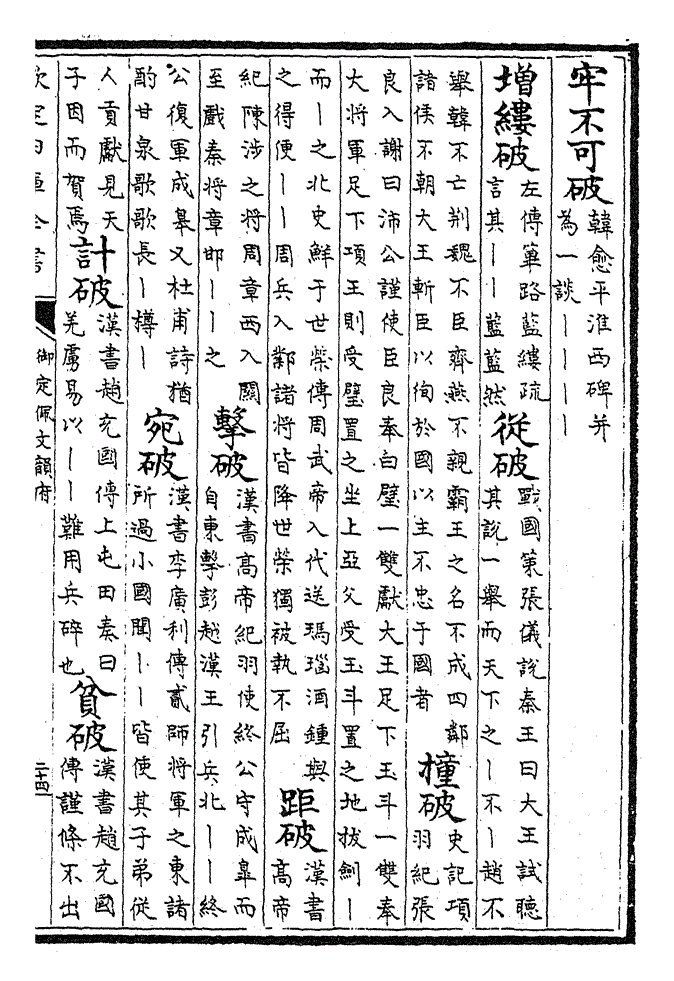 牢不可破 韓愈平淮西碑并
為一談丨丨丨丨
増縷破 左傳篳路藍縷疏
言其丨丨藍藍然 從破 戰國策張儀說秦王曰大王試聽
其說一舉而天下之丨不丨趙不
舉韓不亡荆魏不臣齊燕不親霸王之名不成四鄰
諸侯不朝大王斬臣以徇於國以主不忠于國者 撞破 史記項
羽紀張
良入謝曰沛公謹使臣良奉白璧一雙獻大王足下玉斗一雙奉
大將軍足下項王則受璧置之坐上亞父受玉斗置之地拔劍丨
而丨之北史鮮于世榮傳周武帝入代送瑪瑙酒鍾與
之得便丨丨周兵入鄴諸將皆降世榮獨被執不屈 距破 漢書
高帝
紀陳涉之將周章西入關
至戲秦將章邯丨丨之 擊破 漢書高帝紀羽使終公守成臯而
自東擊彭越漢王引兵北丨丨終
公復軍成臯又杜甫詩猶
酌甘泉歌歌長丨樽丨 宛破 漢書李廣利傳貳師將軍之東諸
所過小國聞丨丨皆使其子弟從
人貢獻見天
子因而賀焉 計破 漢書趙充國傳上屯田奏曰
羌虜易以丨丨難用兵碎也 貧破 漢書趙充國
傳謹條不出
欽定四庫全書
御定佩文韻府
二十四